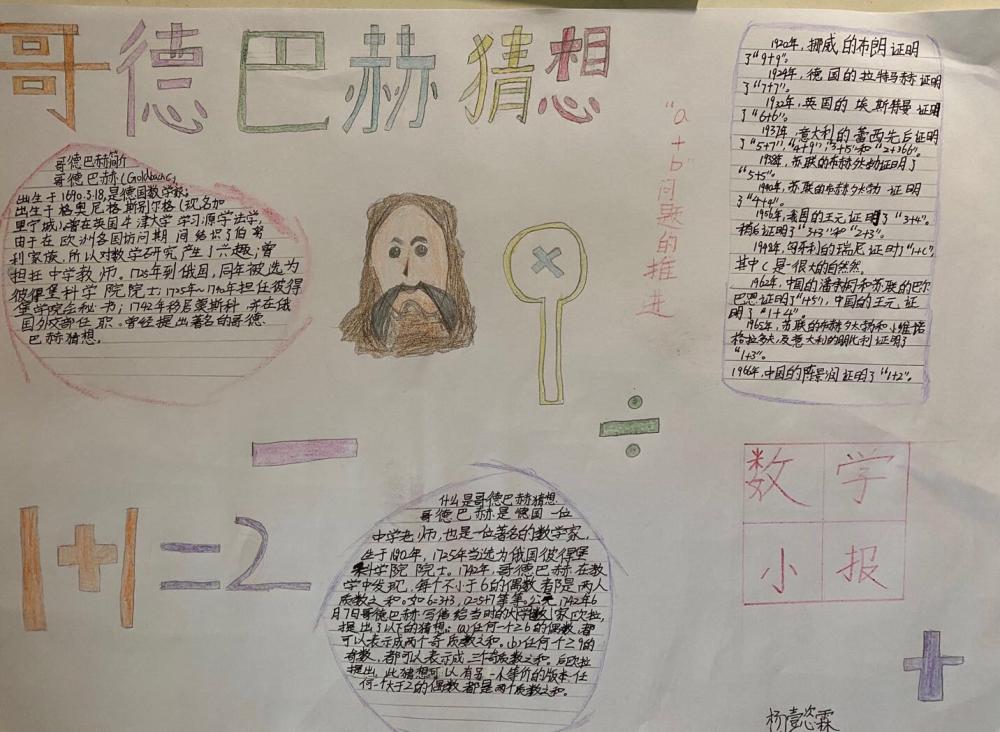 哥德巴赫猜想
哥德巴赫简介
哥德巴赫(Goldbach C)
出生于1690.3.18,是德国数学家;
出生于格奥尼格斯别尔格(现名加
里宁城);曾在英国牛津大学学习;源学法学,
由于在欧洲各国访问期间结识了伯努
利家族,所以对数学研究产生了兴趣;曾
担任中学教师。1725年到俄国,同年被选为
彼得堡科学院院士;1725年~1740年担任彼得
堡学院会秘书;1742年移居莫斯科,并在俄
国外交部任职。曾经提出著名的哥德
巴赫猜想。
"a+b"问题的推进
1920年,挪威的布朗证明
了"9+9"。
1924年,德国的拉特马赫证明
了"7+7"。
1932年,英国的埃斯特曼证明
了"6+6"。
1937年,意大利的蕾西先后证明
了"5+7","4+9","3+15"和"2+366"。
1938年,苏联的布赫夕太勃证明了
"5+5"。
1940年,苏联的布赫夕太勃证明了
"4+4"。
1956年,我国的王元证明了"3+4"。
稍后证明了"3+3"和"2+3"。
1948年,匈牙利的瑞尼证明了"1+c",
其中c是一很大的自然然。
1962年,中国的潘承洞和苏联的巴尔
巴恩证明了"1+5",中国的王元证
明了"1+4"。
1965年,苏联的布赫夕太勃和小维诺
格拉多夫,及意大利的朋比利证明了
"1+3"。
1966年,中国的陈景润证明了"1+2"。
×
÷
−
1+1=2
什么是哥德巴赫猜想
哥德巴赫是德国一位
中学老师,也是一位著名的数学家,
生于1690年,1725年当选为俄国彼得堡
科学院院士。1742年,哥德巴赫在教
学中发现,每个不小于6的偶数都是两人
质数之和。如6=3+3,12=5+7等等。公元1742年6
月7日哥德巴赫写信给当时的大学数家欧拉,
提出了以下的猜想:(a)任何一个≥6的偶数,都
可以表示成两个奇质数之和。(b)任何一个≥9的
奇数,都可以表示成三个奇质数之和。后欧拉
提出,此猜想可以有另一个等价的版本:任
何一个大于2的偶数都是两个质数之和。
数学
小报
+